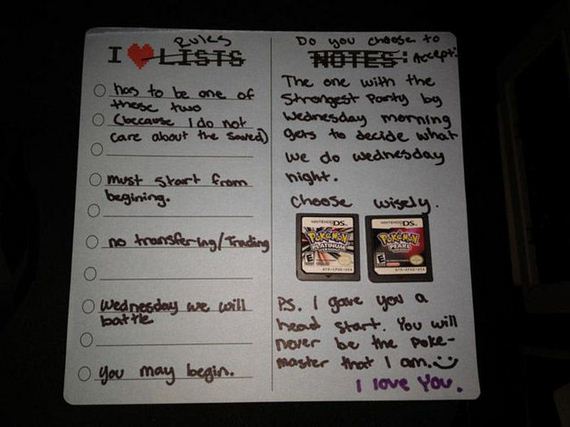 Rules
I LISTS
has to be one of
these two
(because I do not
care about the saved)
must start from
begining.
no transfering/Trading
Wednesday we will
battle
you may begin.
Do you choose to
NOTES: Accept:
The one with the
Strongest Party by
Wednesday morning
gets to decide what
we do wednesday
night.
Choose wisely.
NINTENDO DS
POKéMON
PLATINUM
E
NINTENDO DS
POKéMON
PEARL
E
PS. I gave you a
head start. You will
never be the Poke-
master that I am.
I love You.